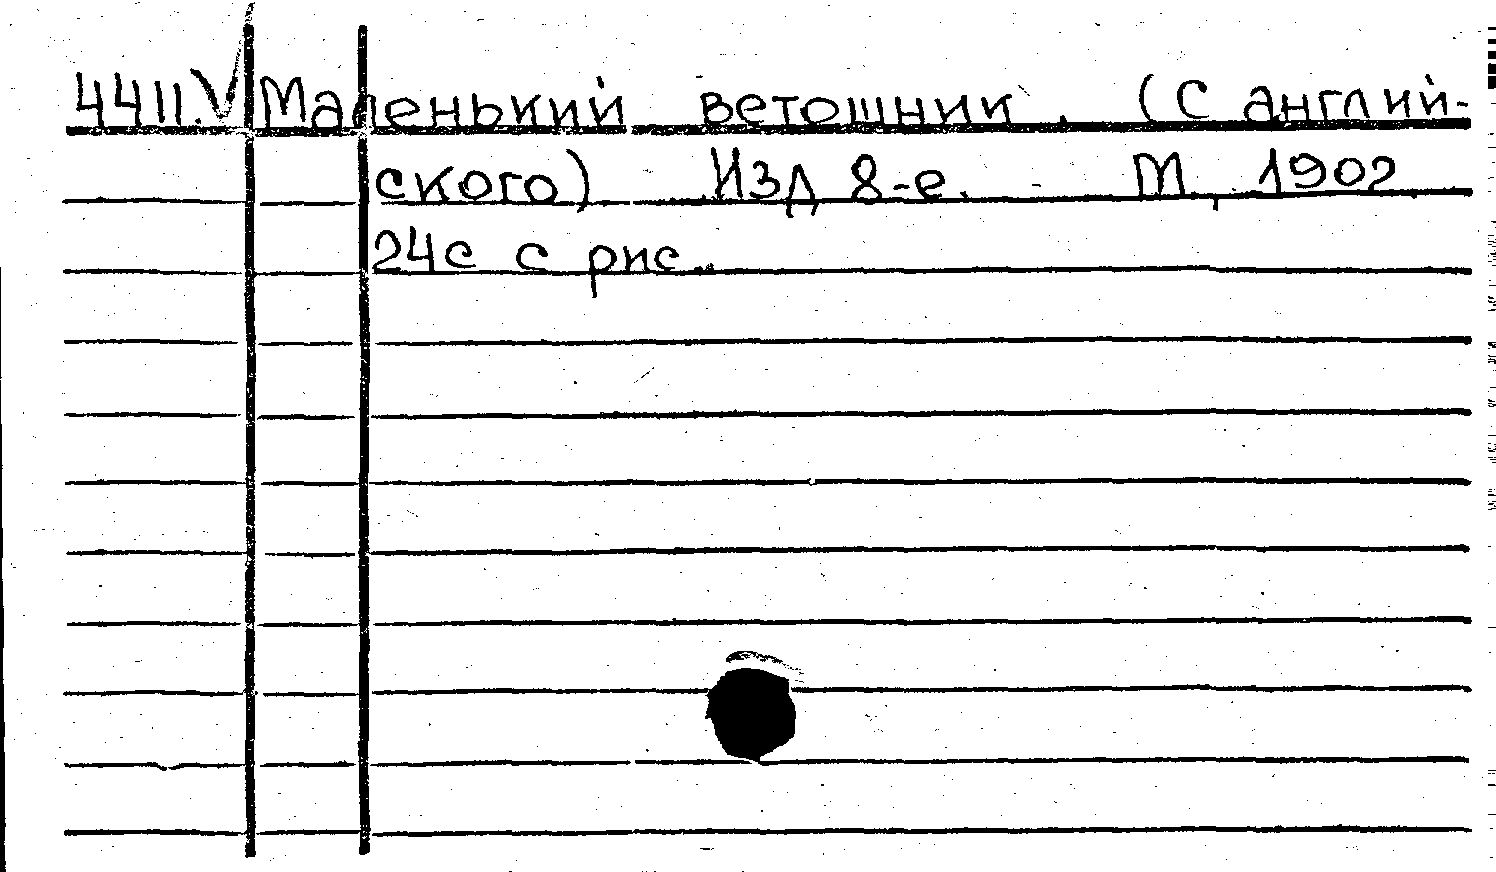 4411.V Маленький ветошник. (С англий-
ского) Изд 8-е. - М., 1902
24с с рис..